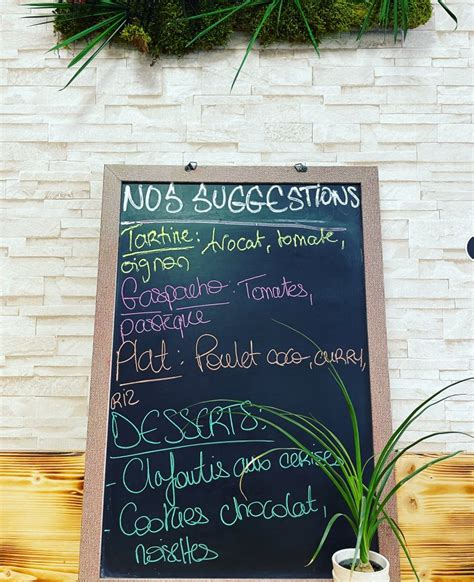 NOS SUGGESTIONS
Tartine: Avocat, tomate,
oignon
Gaspacho: Tomates,
pasteque
Plat: Poulet coco, curry,
RIZ
DESSERTS:
- Clafoutis aux cerises
- Cookies chocolat,
noisettes